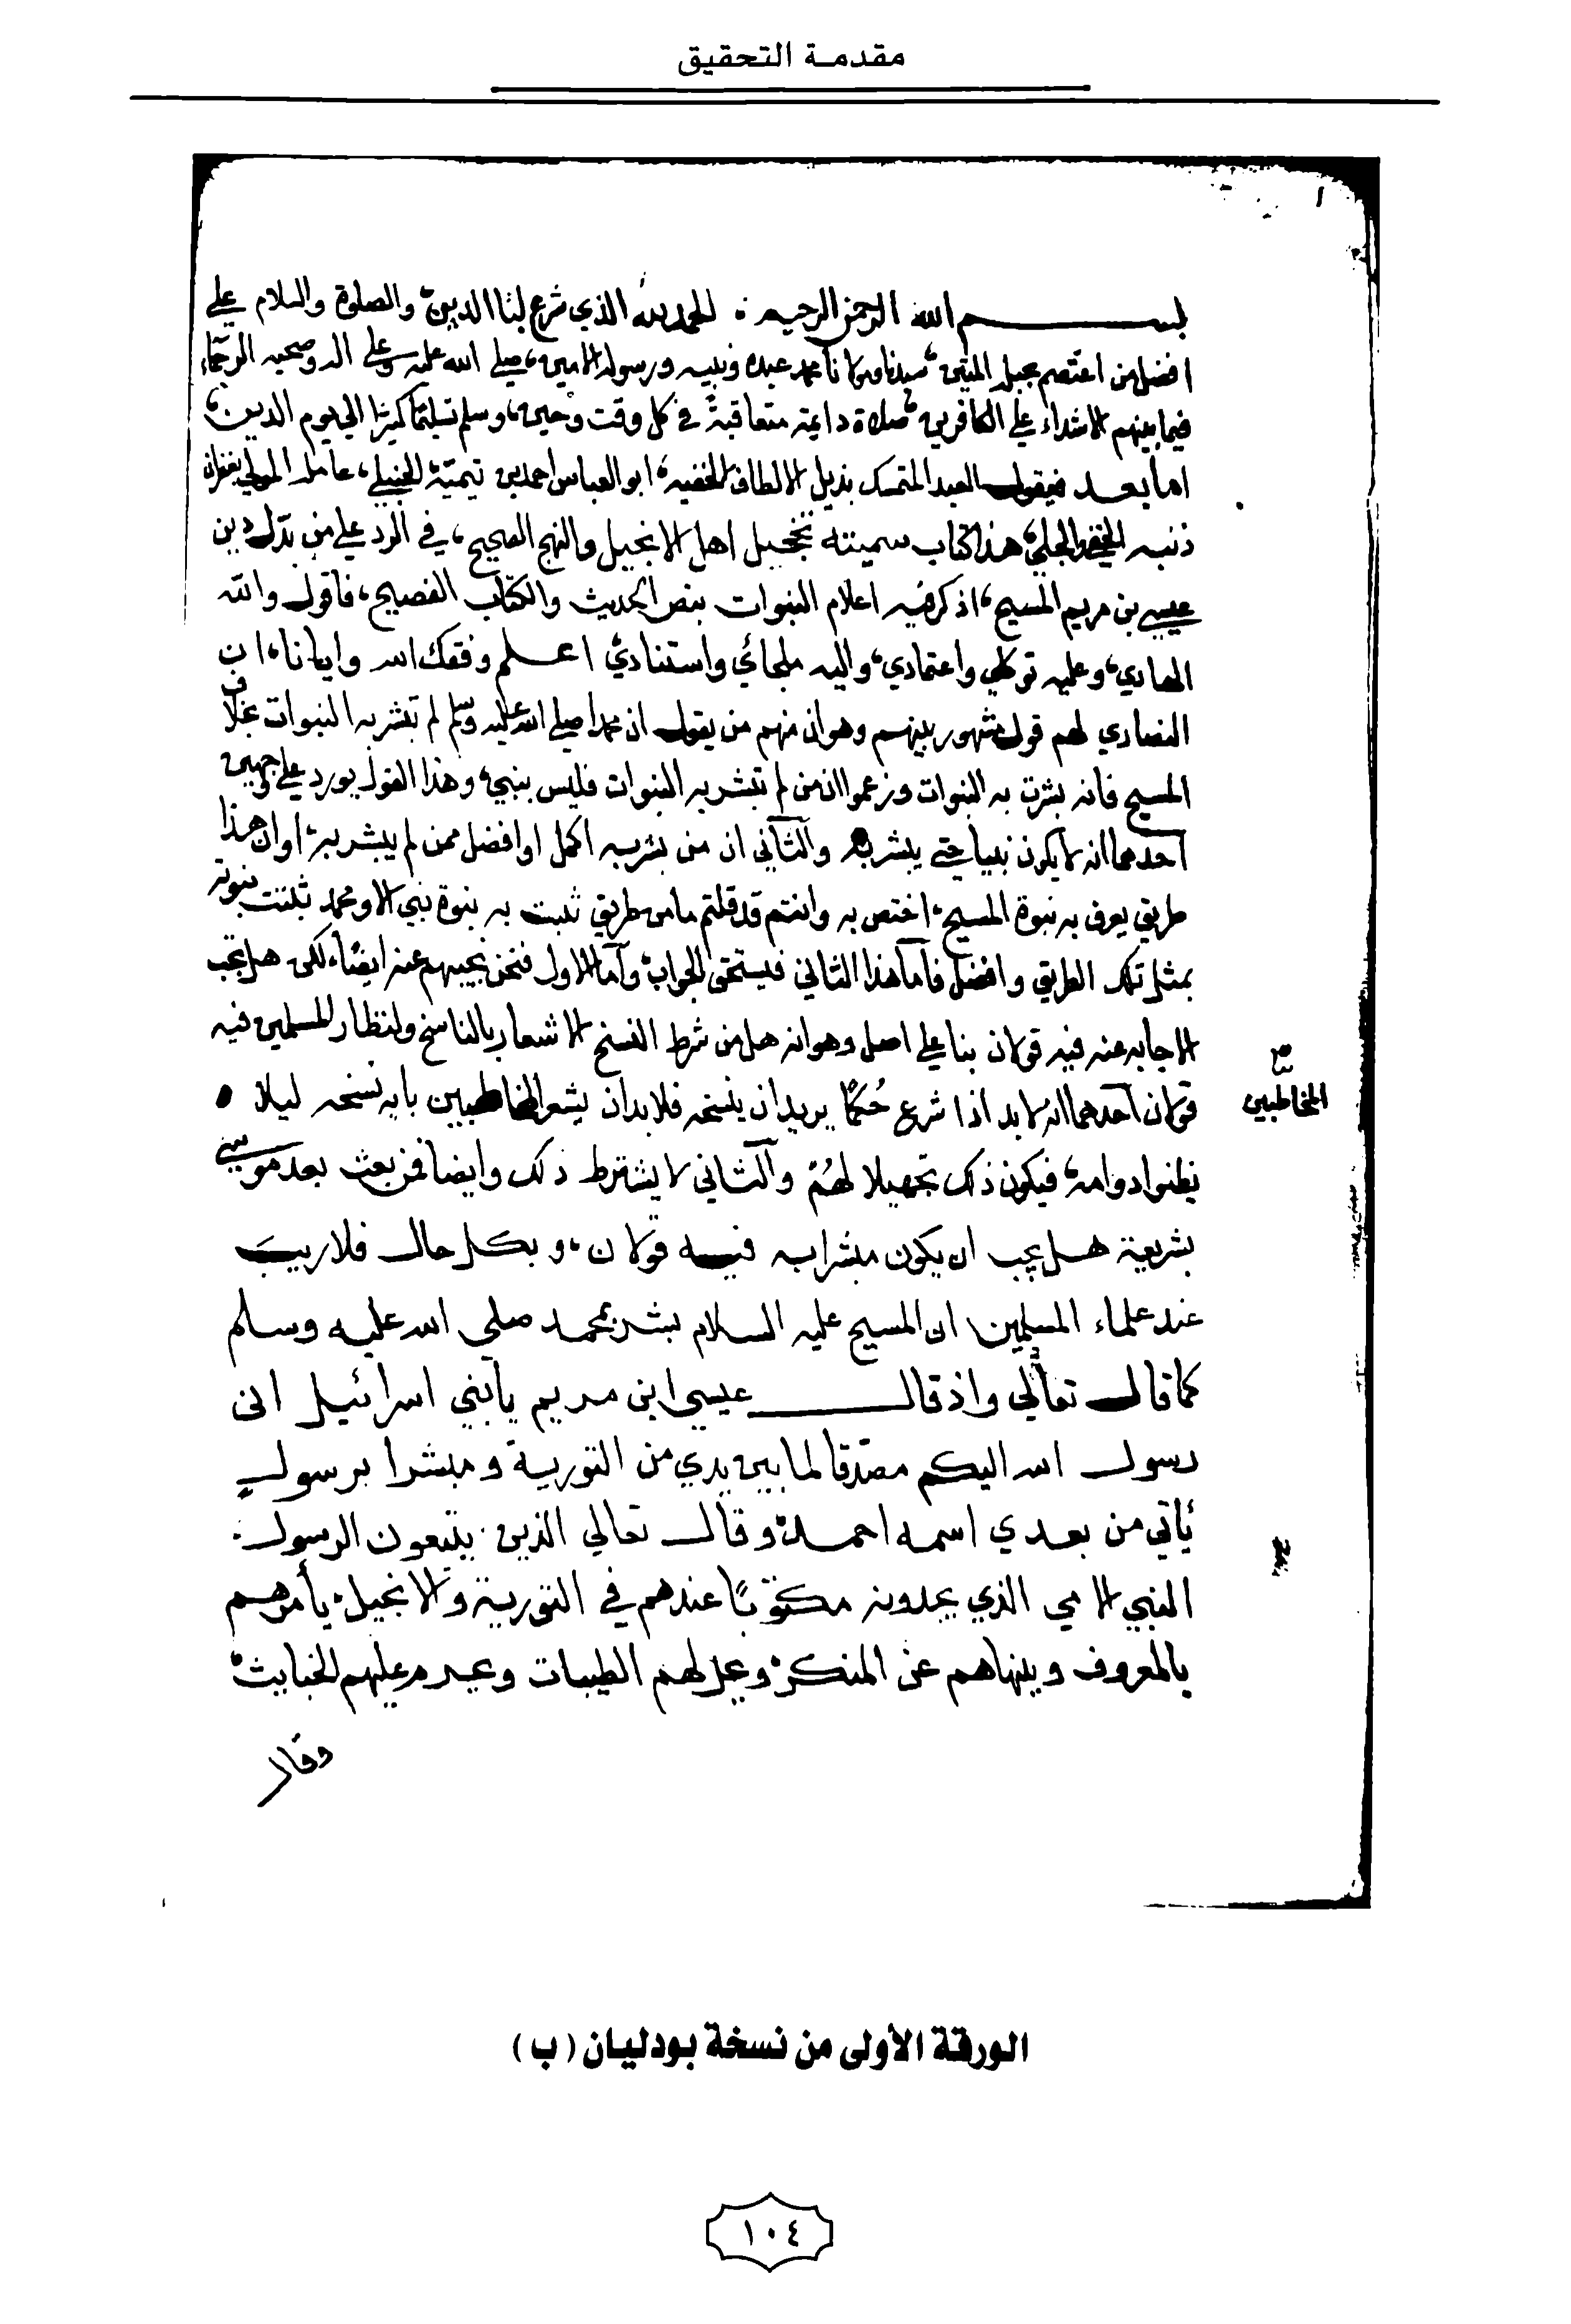 مقدمة التحقيق
١
بسم الله الرحمن الرحيم . الحمد لله الذي شرع لنا الدين، والصلوة والسلام علي
افضل من اعتصم بحبله المتين، سيدنا ومولانا محمد عبده ونبيه ورسوله الامين، صلي الله عليه وعلي اله وصحبه الرحماء
فيما بينهم الاشداء علي الكافرين، صلاة دايمة متعاقبةً في كل وقت وحين، وسلم تسليما كثيرا الي يوم الدين،
اما بعد فيقول العبد المتمسك بذيل الالطاف الخفيه، ابو العباس احمد بن تيميّة الحنبلي، عامله المولي بغفران
ذنبه الخفي والجلي، هذا كتاب سميته تخجيل اهل الانجيل والنهج الصحيح، في الرد علي من بدّل دين
عيسي بن مريم المسيح، اذكر فيه اعلام النبوات بنص الحديث والكتاب الفصيح، فاقول والله
الهادي، وعليه توكلي واعتمادي، واليه ملجائي واستنادي، اعلم وفقك الله وايانا، ان
النصاري لهم قول مشهور بينهم وهو ان منهم من يقول ان محمدا صلي الله عليه وسلم لم تبشر به النبوات بخلاف
المسيح فانه بشرت به النبوات وزعموا ان من لم تبشر به النبوات فليس بنبي، وهذا القول يورد علي وجهين
احدهما انه لا يكون نبيا حتي يبشر به والثاني ان من بشر به اكمل او افضل ممن لم يبشر به، او ان هذا
طريق يعرف به نبوة المسيح، اختص به وانتم قد قلتم ما من طريق ثبت به نبوة نبي الا ومحمد ثبتت نبوته
بمثل تلك الطريق وافضل فاما هذا الثاني فيستحق الجواب، وآما الاول فنحن نجيبهم عنه ايضًا، لكن هل تجب
الاجابه عنه فيه قولان بنا علي اصل وهو انه هل من شرط النسخ الاشعار بالناسخ ولنظار المسلمين فيه
قولان احدهما انه لا بد اذا شرع حُكمًا يريد ان ينسخه فلا بد ان يشعر المخاطبين بانه نسخه ليلا
المخاطبين
يظنوا دوامه، فيكون ذلك تجهيلا لهُمْ والثاني لا يشترط ذلك وايضا فمن بعث بعد موسي
بشريعة هل يجب ان يكون مبشرا به فيه قولان، وبكل حال فلا ريب
عند علماء المسلمين ان المسيح عليه السلام بشر بمحمد صلى الله عليه وسلم
كما قال تعالي واذ قال عيسى ابن مريم يا بني اسرائيل اني
رسول الله اليكم مصدّقا لما بين يدي من التورية ومبشرا برسولٍ
يأتي من بعدي اسمه احمد، وقال تعالي الذين يتبعون الرسول
النبي الامي الذي يجدونه مكتوبًا عندهم في التورية والانجيل، يأمرهم
بالمعروف وينهاهم عن المنكر، ويحل لهم الطيبات ويحرم عليهم الخبايث
وقال
الورقة الأولى من نسخة بودليان (ب)
١٠٤